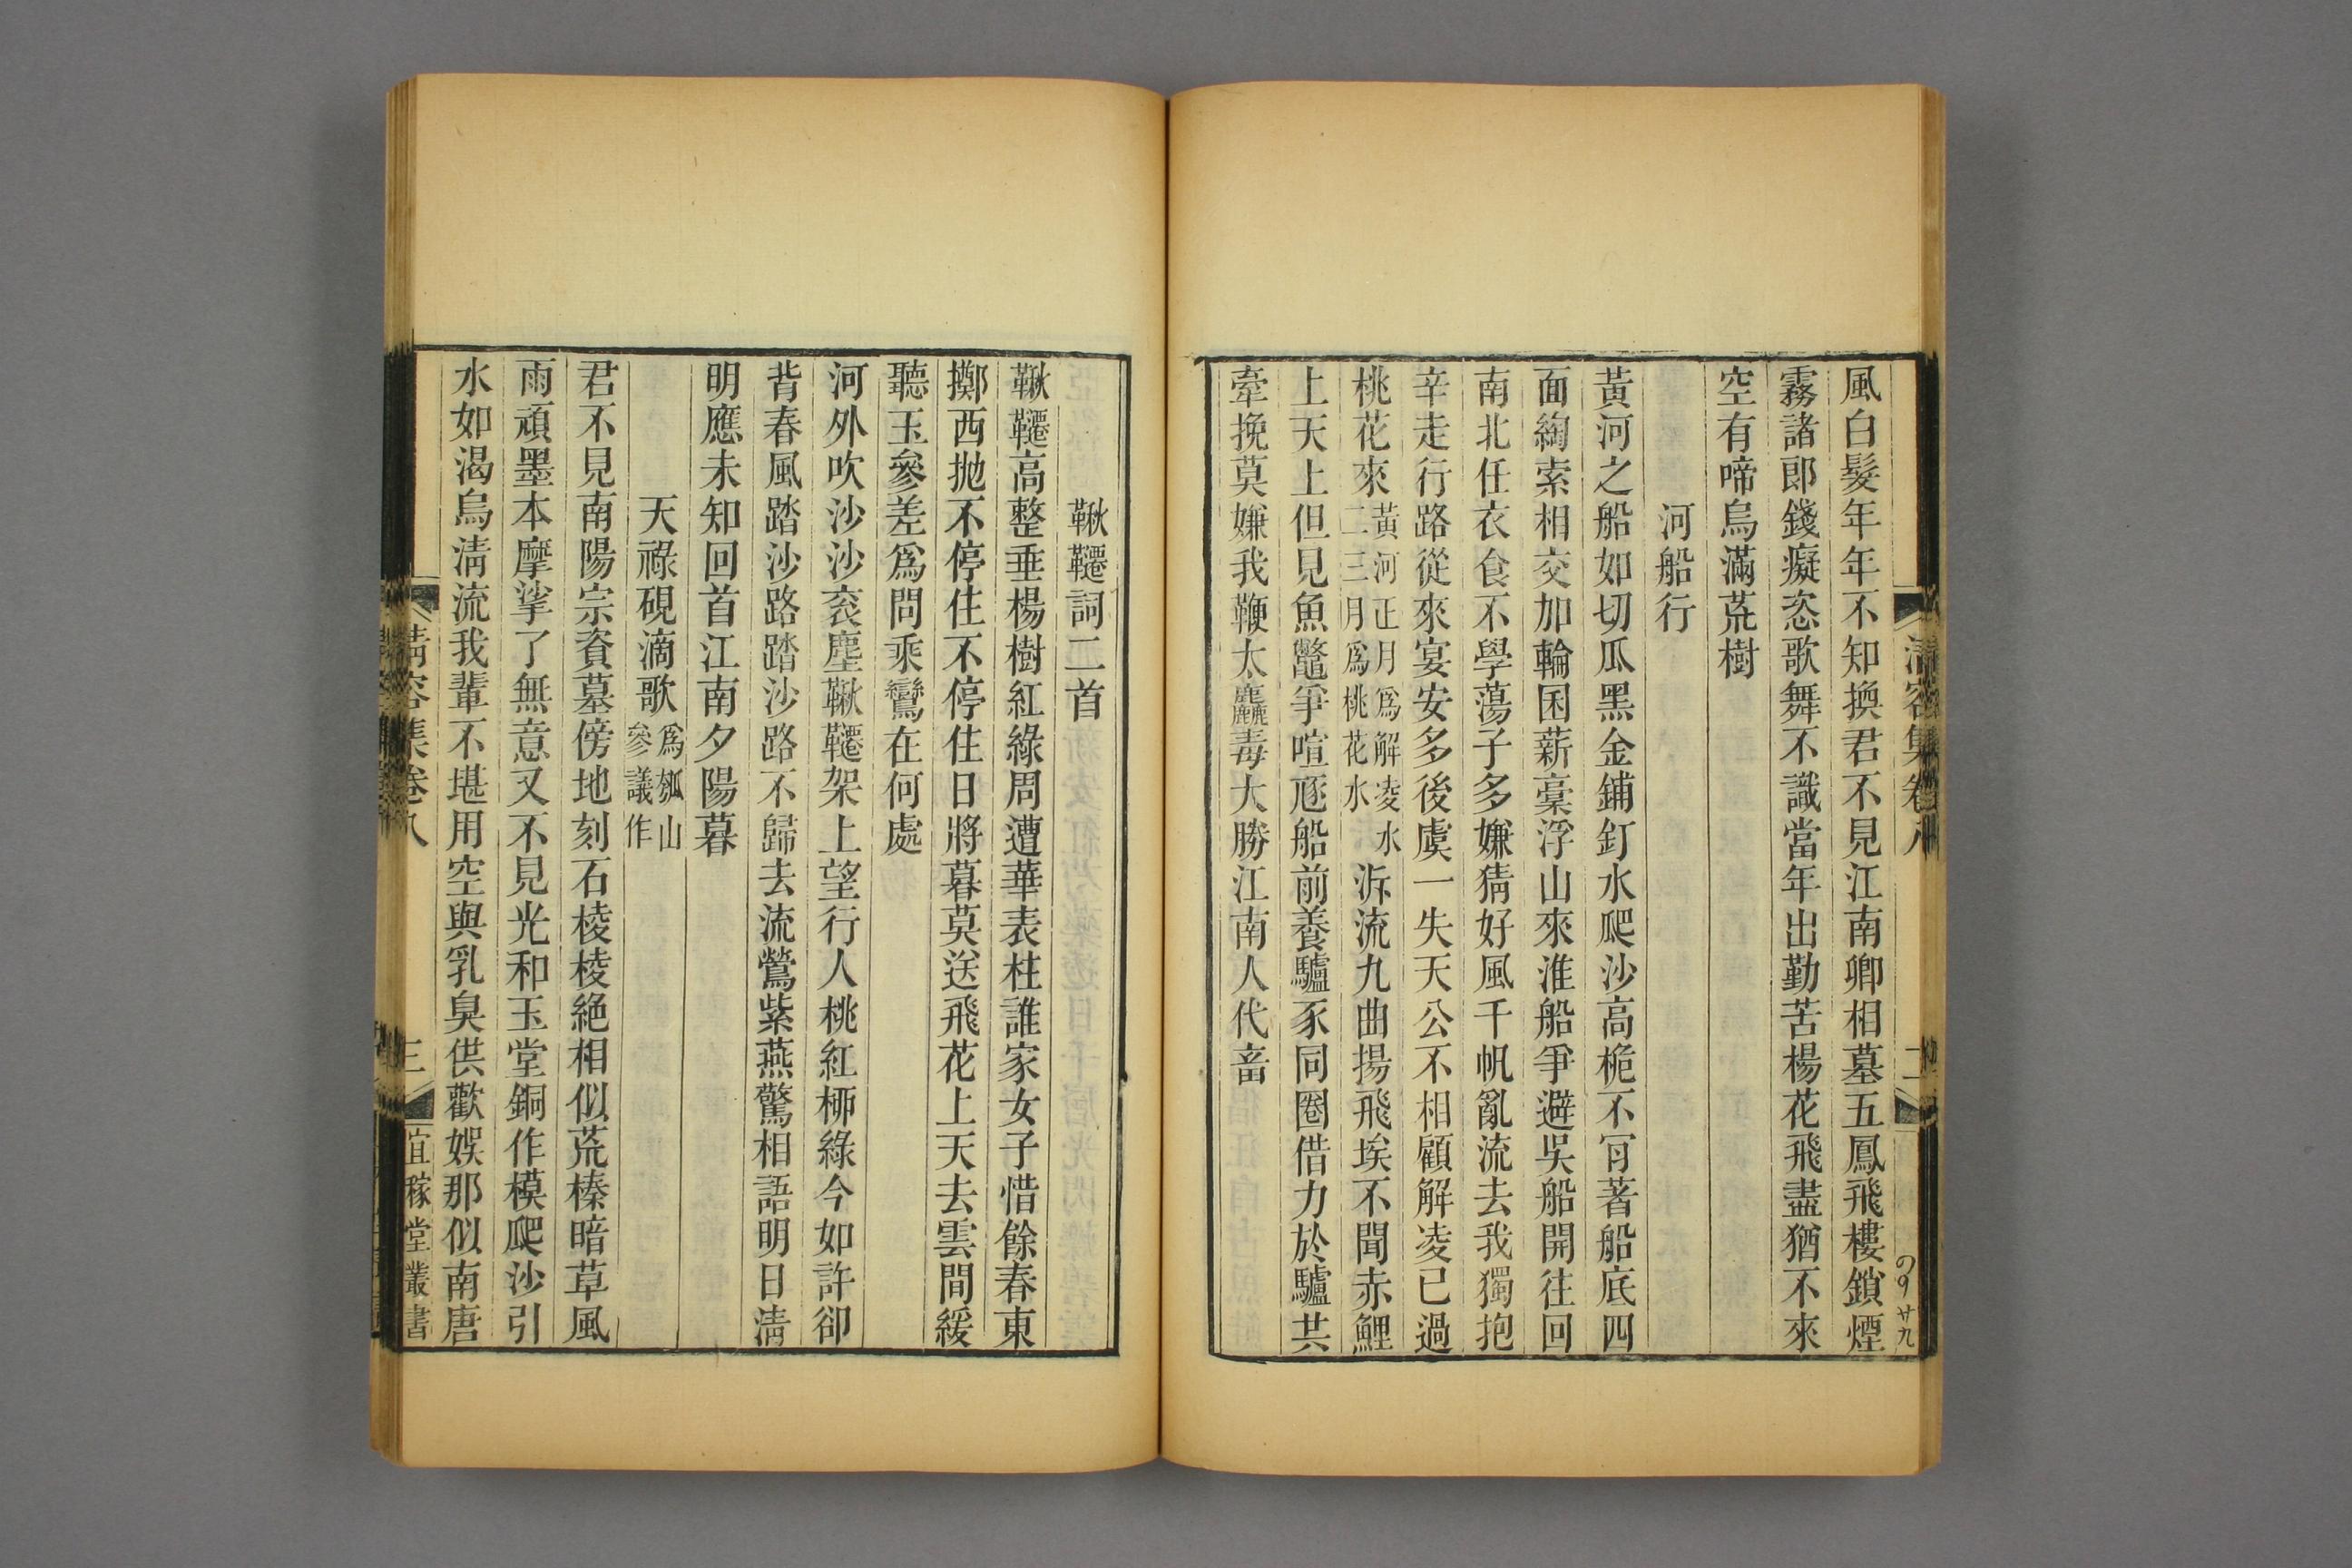 風白髮年年不知換君不見江南卿相墓五鳳飛樓鎖煙
霧諸郎錢癡恣歌舞不識當年出勤苦楊花飛盡猶不來
空有啼烏滿荒樹
河船行
黃河之船如切瓜黑金鋪釘水爬沙高桅不肎著船底四
面綯索相交加輪囷薪藁浮山來淮船爭避吳船開往回
南北任衣食不學蕩子多嫌猜好風千帆亂流去我獨抱
辛走行路從來宴安多後虞一失天公不相顧解凌已過
桃花來黃河正月爲解凌水二三月爲桃花水泝流九曲揚飛埃不聞赤鯉
上天上但見魚鼈爭喧豗船前養驢豕同圈借力於驢共
牽挽莫嫌我鞭太麤毒大勝江南人代畜
鞦韆詞二首
鞦韆高整垂楊樹紅綠周遭華表柱誰家女子惜餘春東
擲西拋不停住不停住日將暮莫送飛花上天去雲間緩
聽玉參差爲問乘鸞在何處
河外吹沙沙衮塵鞦韆架上望行人桃紅柳綠今如許卻
背春風踏沙路踏沙路不歸去流鶯紫燕驚相語明日淸
明應未知回首江南夕陽暮
天祿硯滴歌爲瓠山參議作
君不見南陽宗資墓傍地刻石棱棱絕相似荒榛暗草風
雨頑墨本摩挲了無意又不見光和玉堂銅作模爬沙引
水如渴烏淸流我輩不堪用空與乳臭供歡娛那似南唐
淸容集卷八
三
宜稼堂叢書